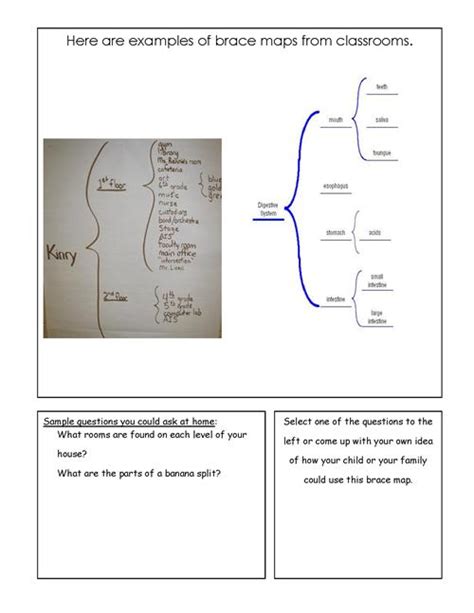 Here are examples of brace maps from classrooms.
Kinry
1st Floor
gym
library
cafeteria
art
6th grade
music
nurse
custodians
band/orchestra
Stage
AIS
faculty room
main office
"intersection"
blue
gold
green
2nd floor
4th grade
5th grade
computer lab
AIS
Digestive
System
mouth
teeth
saliva
toungue
esophagus
stomach
acids
intestine
small
intestine
large
intestine
Sample questions you could ask at home:
What rooms are found on each level of your
house?
What are the parts of a banana split?
Select one of the questions to the
left or come up with your own idea
of how your child or your family
could use this brace map.